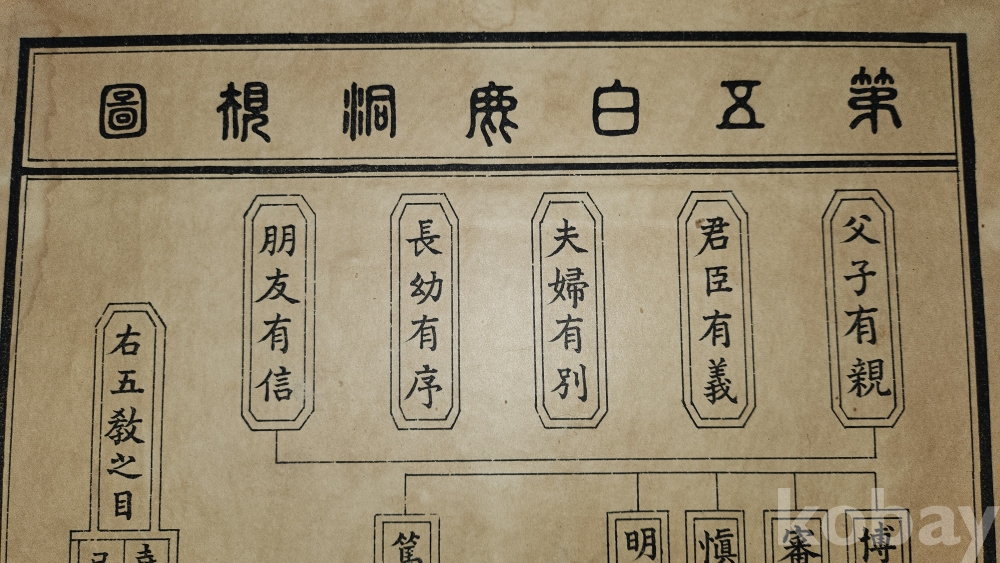 第五白鹿洞規圖
父子有親
君臣有義
夫婦有別
長幼有序
朋友有信
右五教之目
博
審
慎
明
篤
kobay